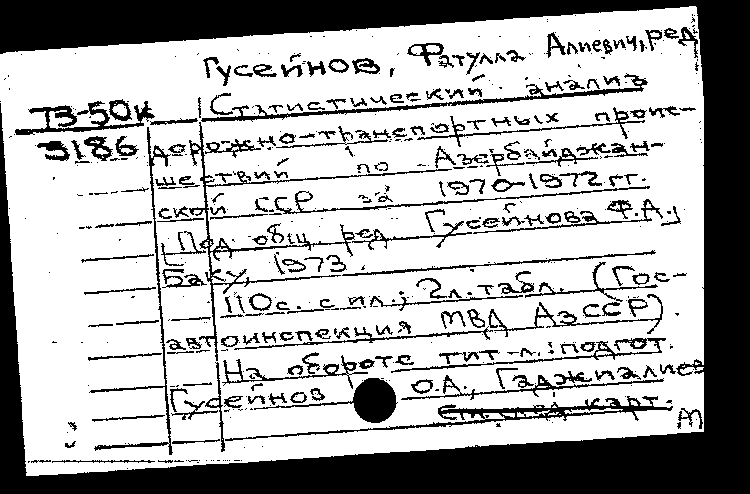 Гусейнов, Фатулла Алиевич, ред
ТЗ-50к Статистический анализ
3186 дорожно-транспортных проис-
шествий по Азербайджан-
ской ССР за 1970-1972 гг.
[Под общ. ред. Гусейнова Ф.А.]
Баку, 1973.
110с. с ил.; 2л. табл. (Гос-
автоинспекция МВД АзССР).
На обороте тит. л.: подгот.
Гусейнов О.А., Гаджиалиев
См. след. карт.